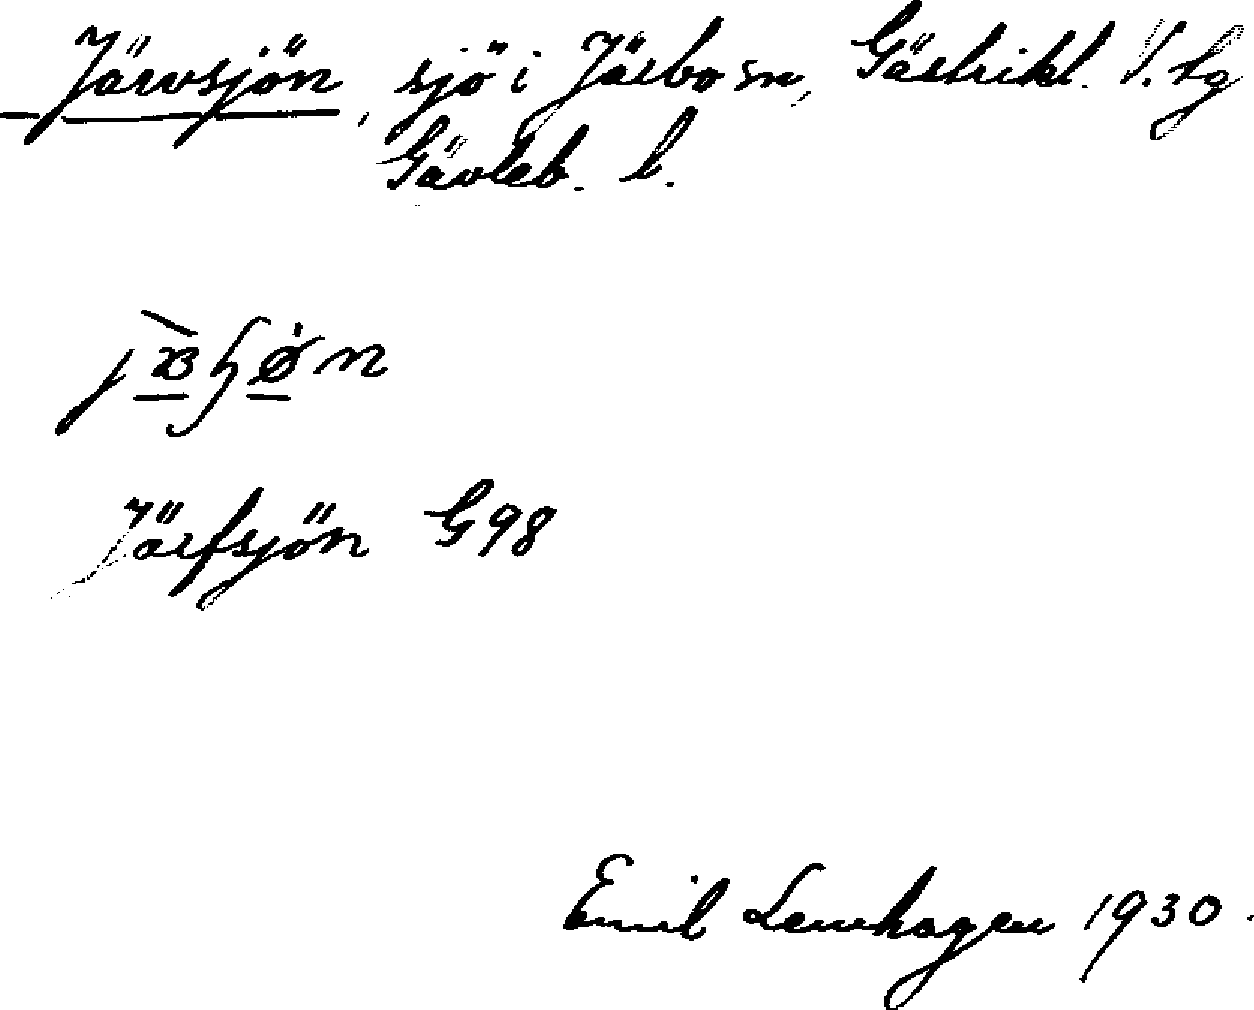 Järvsjön, sjö i Järbo sn, Gästrikl. V. tg
Gävleb. l.
Järfsjön G98
Emil Lenhagen 1930.